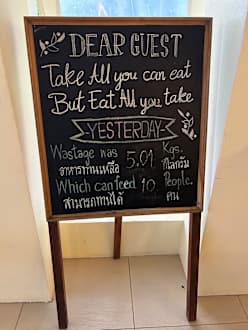 DEAR GUEST
Take All you can eat
But Eat All you take
-YESTERDAY-
Wastage was 5.01 Kgs.
อาหารทานเหลือ กิโลกรัม
Which can feed 10 People.
สามารถทานได้ คน